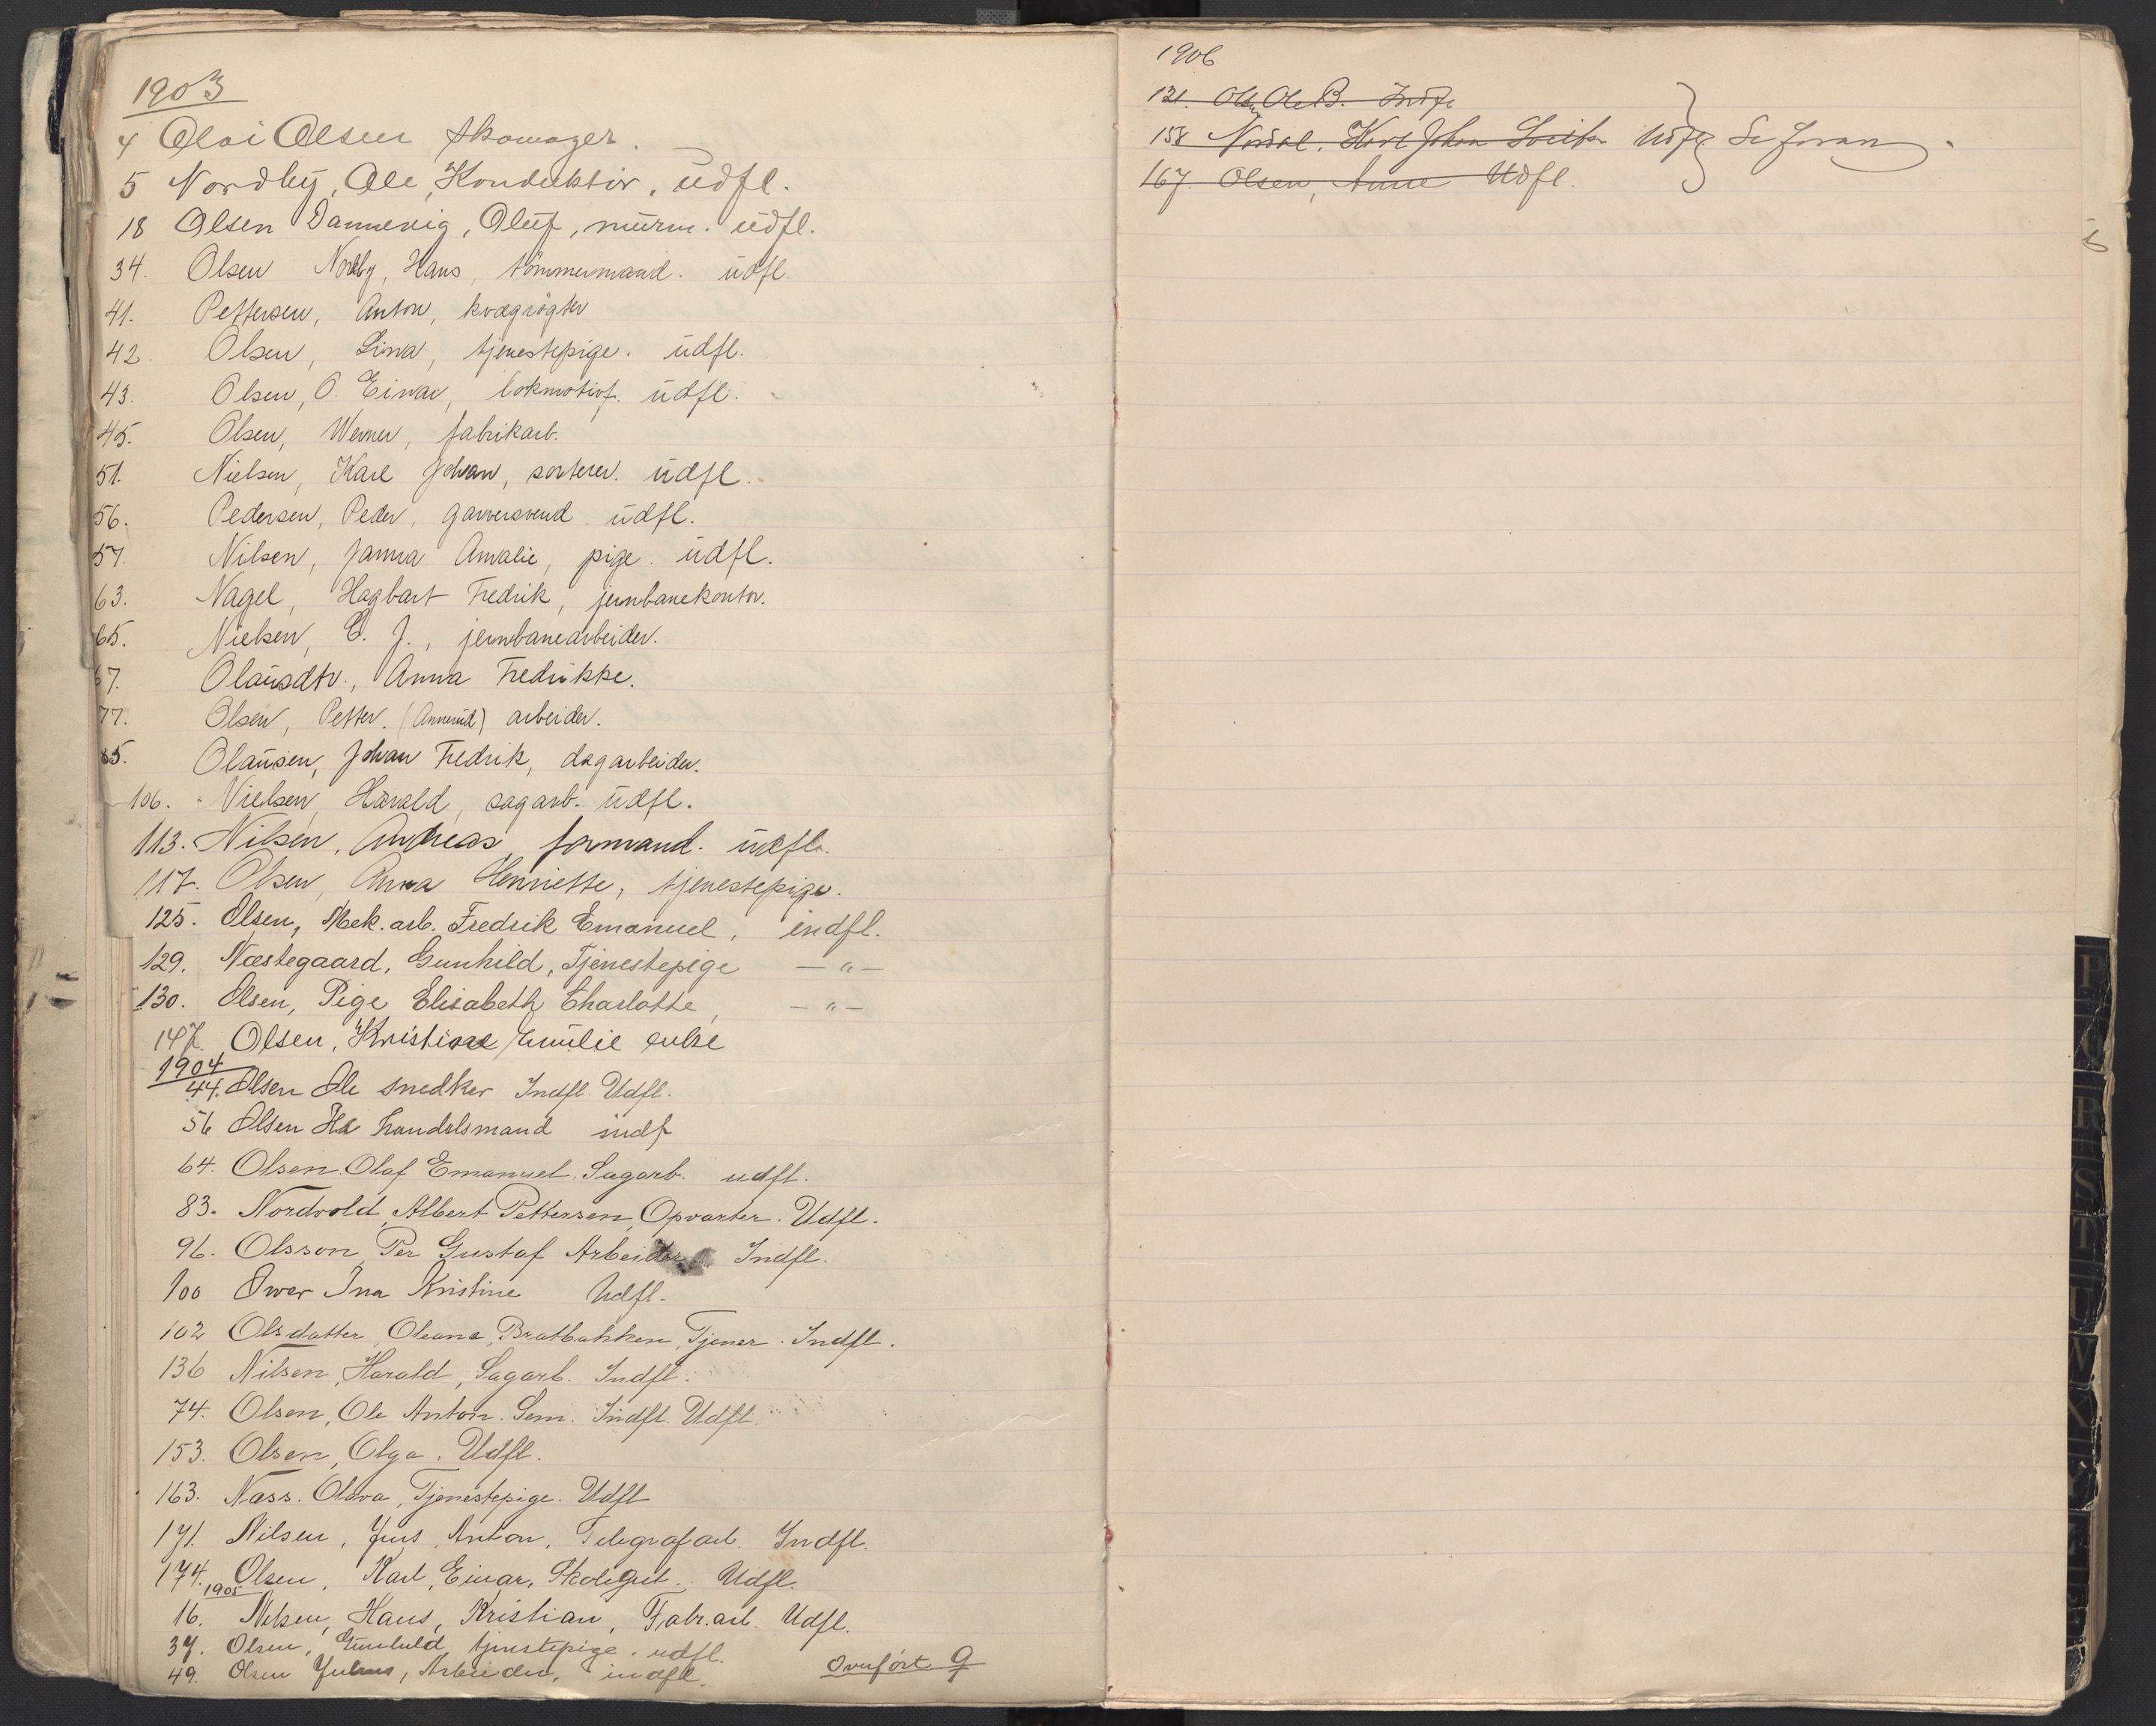 1903
4 Olai Olsen Skomager.
5 Nordby, Ole, Konduktör, üdfl.
18 Olsen Dannevig, Oluf, mürm. üdfl.
34. Olsen Nordby, Hans, tömmermand. üdfl.
41. Pettersen, Anton, kvægrögter
42. Olsen, Lina, tjenestepige. üdfl.
43. Olsen, O. Einar, lokmotivf. üdfl.
45. Olsen, Werner, fabrikarb.
51. Nielsen, Karl Johan, sorterer. üdfl.
56. Pedersen, Peder, garversvend. üdfl.
57. Nilsen, Janna Amalie, pige. üdfl.
63. Nagel, Hagbart Fredrik, jernbanekontor.
65. Nielsen, E. J., jernbanearbeider.
67. Olaüsdtr., Anna Fredrikke.
77. Olsen, Petter. (Annerüd) arbeider.
85. Olaüsen, Johan Fredrik, dagarbeider.
106. Nielsen, Harald, sagarb. üdfl.
113. Nilsen, Andreas, formand. üdfl.
117. Olsen, Anna Henriette, tjenestepige.
125. Olsen, Mek. arb. Fredrik Emanuel, indfl.
129. Næstegaard, Gunhild, Tjenestepige — " —
130. Olsen, Pige Elisabeth Charlotte, — " —
147. Olsen, Kristiane Emilie enke
1904
44. Olsen Ole Snedker Indfl. Udfl.
56 Olsen Ha handelsmand indf
64. Olsen. Olaf Emanuel. Sagarb. udfl.
83. Nordvold, Albert Pettersen, Opvarter. Udfl.
96. Olsson, Per Gustaf Arbeider. Indfl.
100 Ower Ina Kristine Udfl.
102 Olsdatter, Oleana, Bratbakken, Tjener. Indfl.
136 Nilsen, Harald, Sagarb. Indfl.
74. Olsen, Ole Anton. Sem. Indfl. Udfl.
153. Olsen, Olga. Udfl.
163. Næss. Olava, Tjenestepige. Udfl
171. Nilsen, Jens Anton, Telegrafarb. Indfl.
174. Olsen, Karl, Einar, Skolegut. Udfl.
1905
16. Nilsen, Hans, Kristian, Fabr.arb. Udfl.
37. Olsen, Gunhild, tjenestepige. udfl.
49. Olsen Julius, Arbeider, indfl.
Overfört 9
1906
121. Olsen Ole B. Indfl
158 Nordal. Karl Johan Udfl Se foran.
167. Olsen, Anne Udfl.
P
R
S
T
U
W
X
Y